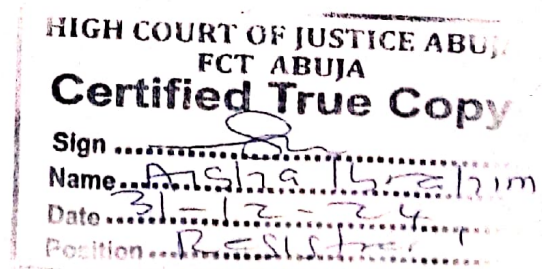 HIGH COURT OF JUSTICE ABUJ
FCT ABUJA
Certified True Copy
Sign
Name Aisha Ibrahim
Date 31-12-24
Position